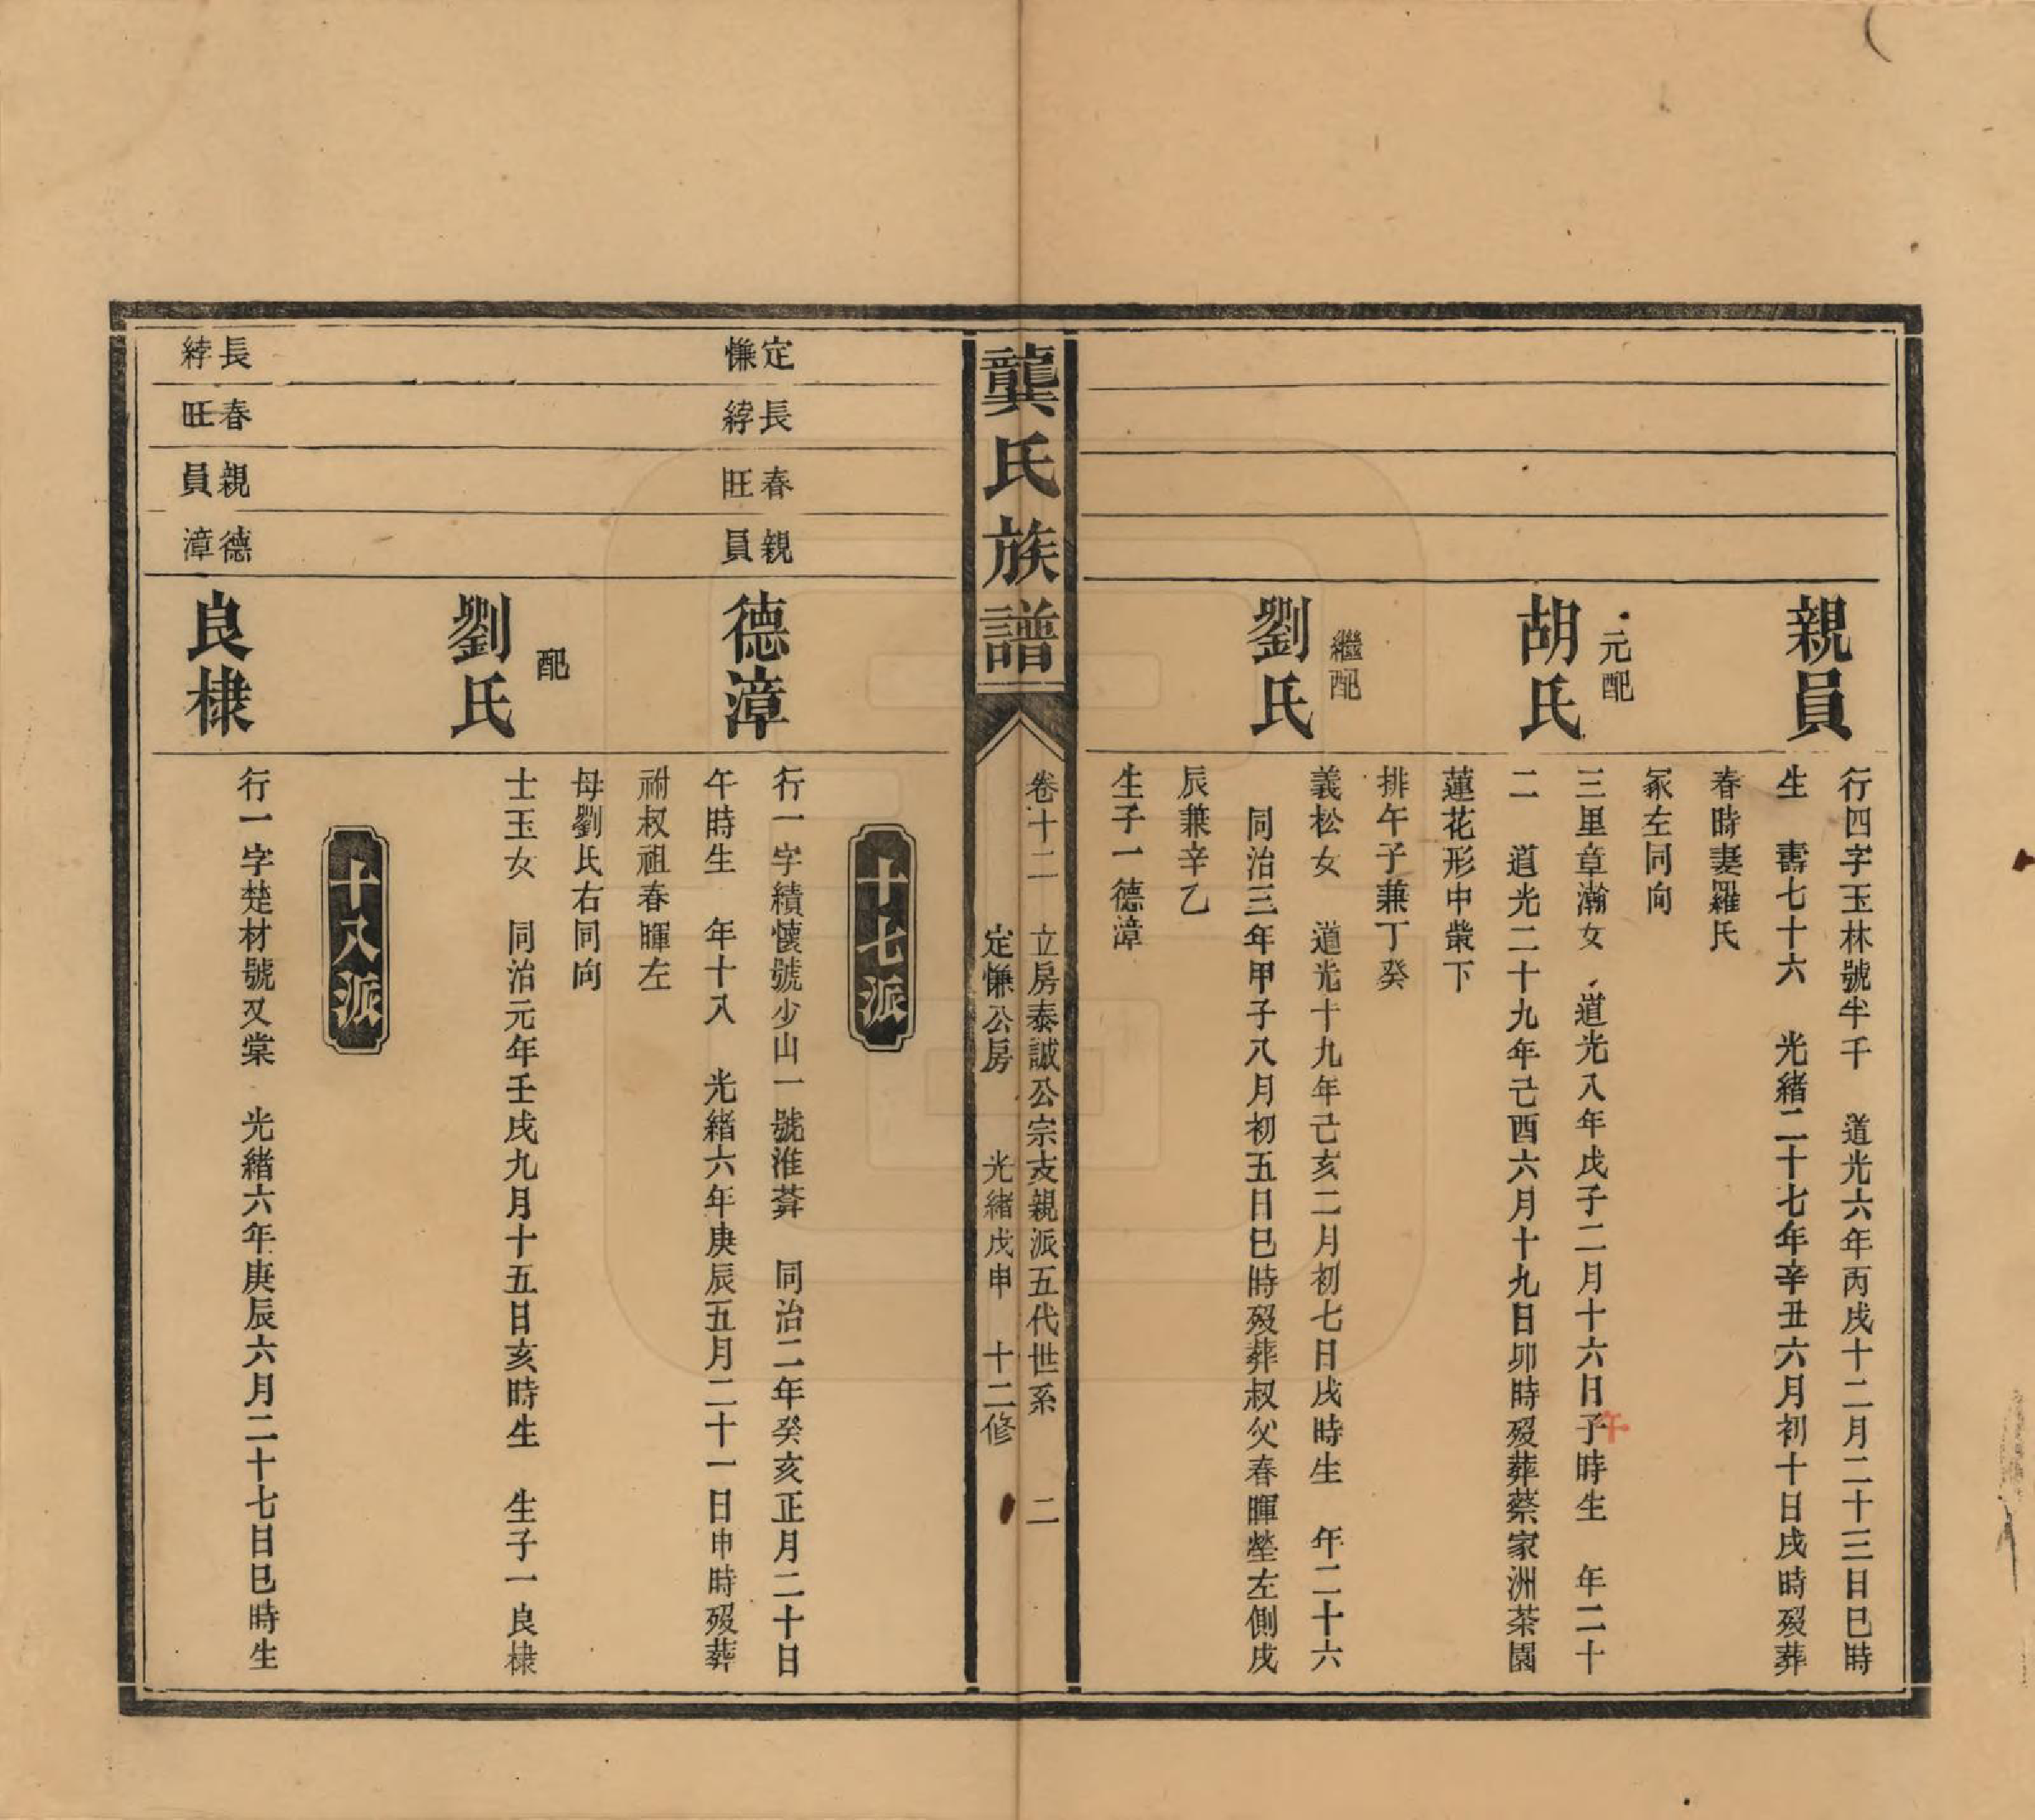 親員
行四字玉林號半千　道光六年丙戌十二月二十三日巳時
生　壽七十六　光緒二十七年辛丑六月初十日戌時歿葬
春時妻羅氏
冢左同向
元配
胡氏
三里章瀚女　道光八年戊子二月十六日子時生　年二十
午
二　道光二十九年己酉六月十九日卯時歿葬蔡家洲茶園
蓮花形中塋下
排午子兼丁癸
繼配
劉氏
義松女　道光十九年己亥二月初七日戌時生　年二十六
同治三年甲子八月初五日巳時歿葬叔父春暉塋左側戌
辰兼辛乙
生子一德漳
龔氏族譜
卷十二　立房泰誠公宗支親派五代世系　二
定慊公房　光緒戊申　十二修
十七派
定慊
長綍
春旺
親員
德漳
行一字績懷號少山一號淮葊　同治二年癸亥正月二十日
午時生　年十八　光緒六年庚辰五月二十一日申時歿葬
祔叔祖春暉左
母劉氏右同向
配
劉氏
士玉女　同治元年壬戌九月十五日亥時生　生子一良棣
十八派
長綍
春旺
親員
德漳
良棣
行一字楚材號又棠　光緒六年庚辰六月二十七日巳時生